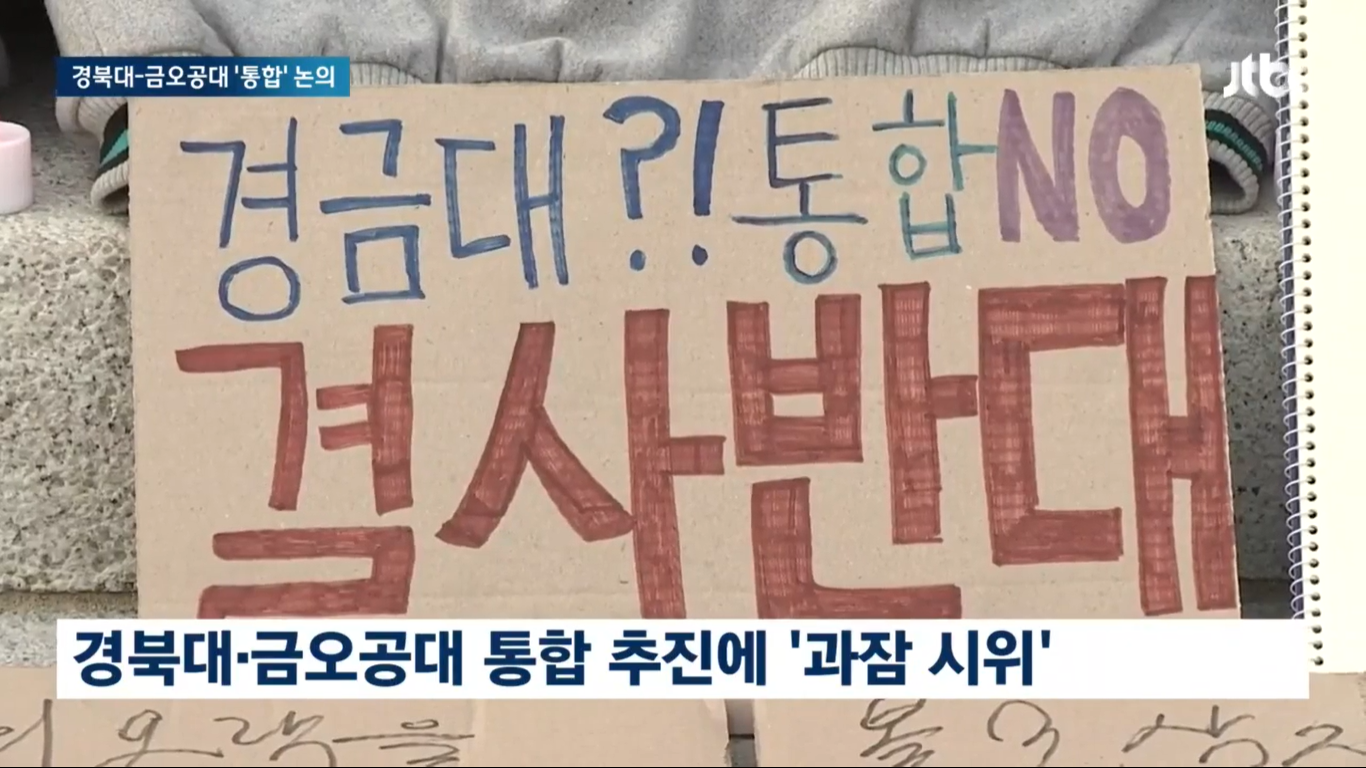 경북대-금오공대 '통합' 논의
jtbc
경금대?! 통합 NO
결사반대
경북대·금오공대 통합 추진에 '과잠 시위'